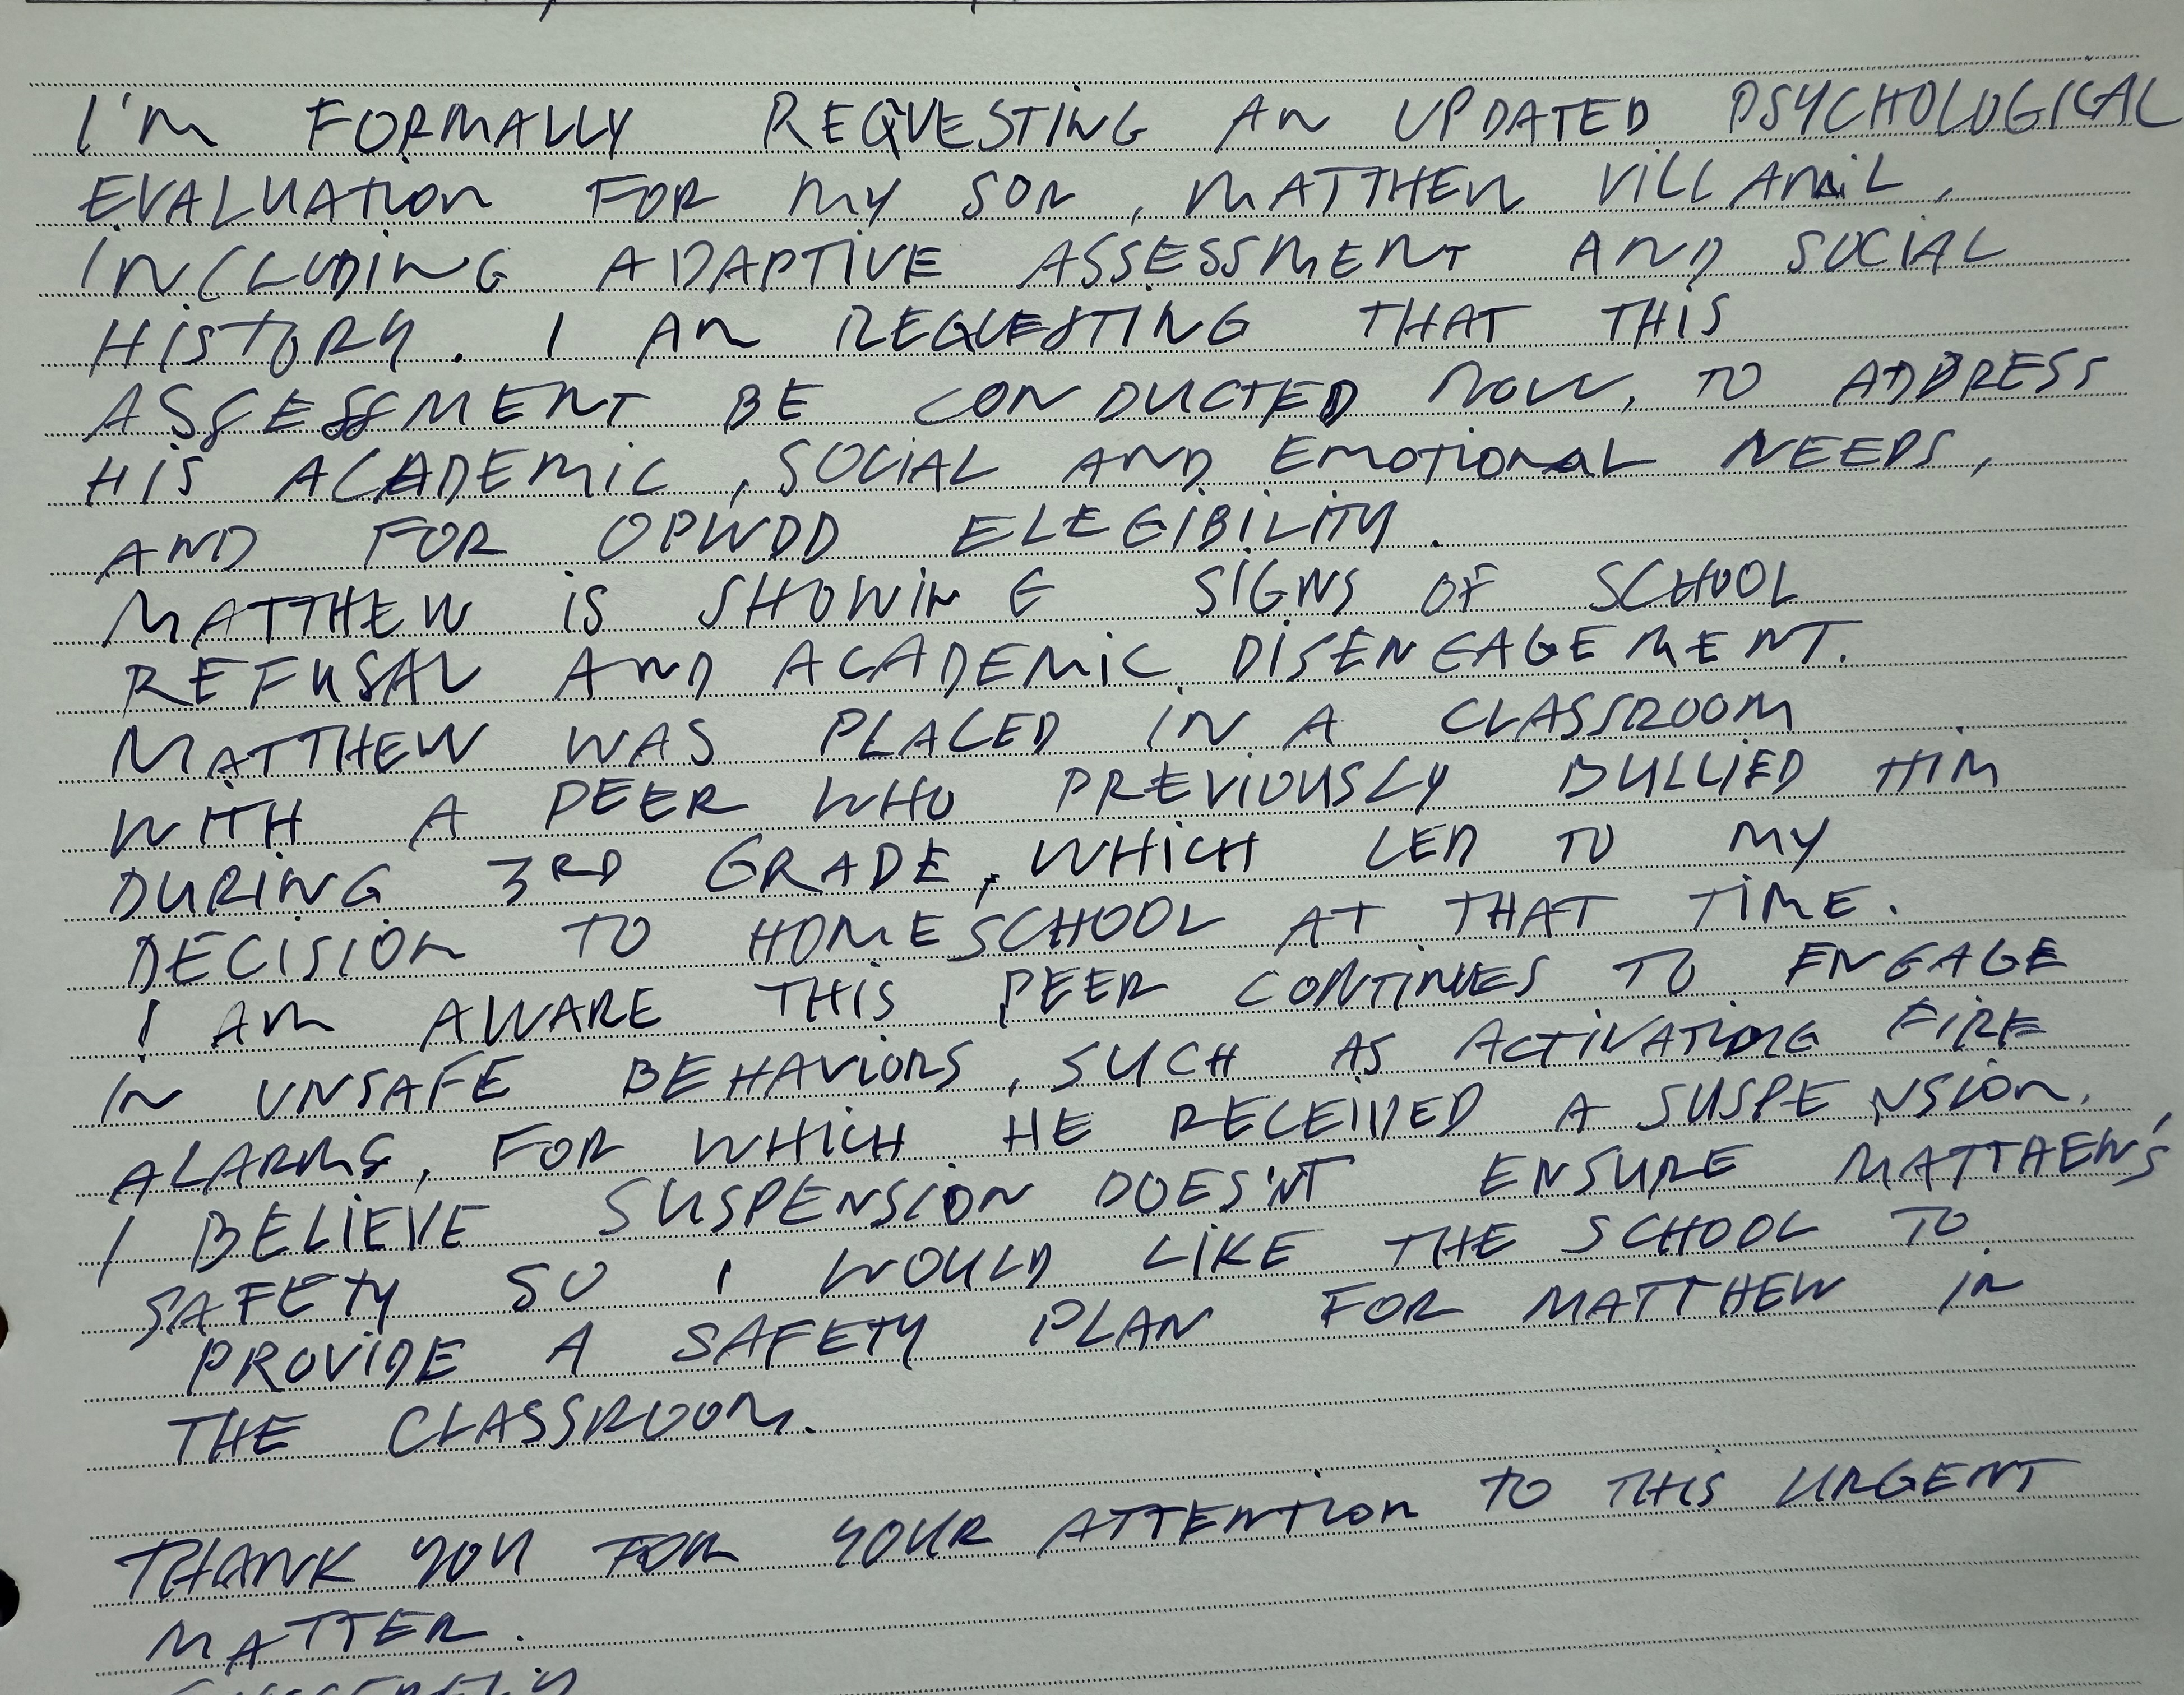 I'M FORMALLY REQUESTING AN UPDATED PSYCHOLOGICAL
EVALUATION FOR MY SON, MATTHEW VILLAMIL,
INCLUDING ADAPTIVE ASSESSMENT AND SOCIAL
HISTORY. I AM REQUESTING THAT THIS
ASSESSMENT BE CONDUCTED NOW, TO ADDRESS
HIS ACADEMIC, SOCIAL AND EMOTIONAL NEEDS,
AND FOR OPWDD ELEGIBILITY.
MATTHEW IS SHOWING SIGNS OF SCHOOL
REFUSAL AND ACADEMIC DISENGAGEMENT.
MATTHEW WAS PLACED IN A CLASSROOM
WITH A PEER WHO PREVIOUSLY BULLIED HIM
DURING 3RD GRADE, WHICH LED TO MY
DECISION TO HOMESCHOOL AT THAT TIME.
I AM AWARE THIS PEER CONTINUES TO ENGAGE
IN UNSAFE BEHAVIORS, SUCH AS ACTIVATING FIRE
ALARMS, FOR WHICH HE RECEIVED A SUSPENSION.
I BELIEVE SUSPENSION DOES'NT ENSURE MATTHEW'S
SAFETY SO I WOULD LIKE THE SCHOOL TO
PROVIDE A SAFETY PLAN FOR MATTHEW IN
THE CLASSROOM.
THANK YOU FOR YOUR ATTENTION TO THIS URGENT
MATTER.